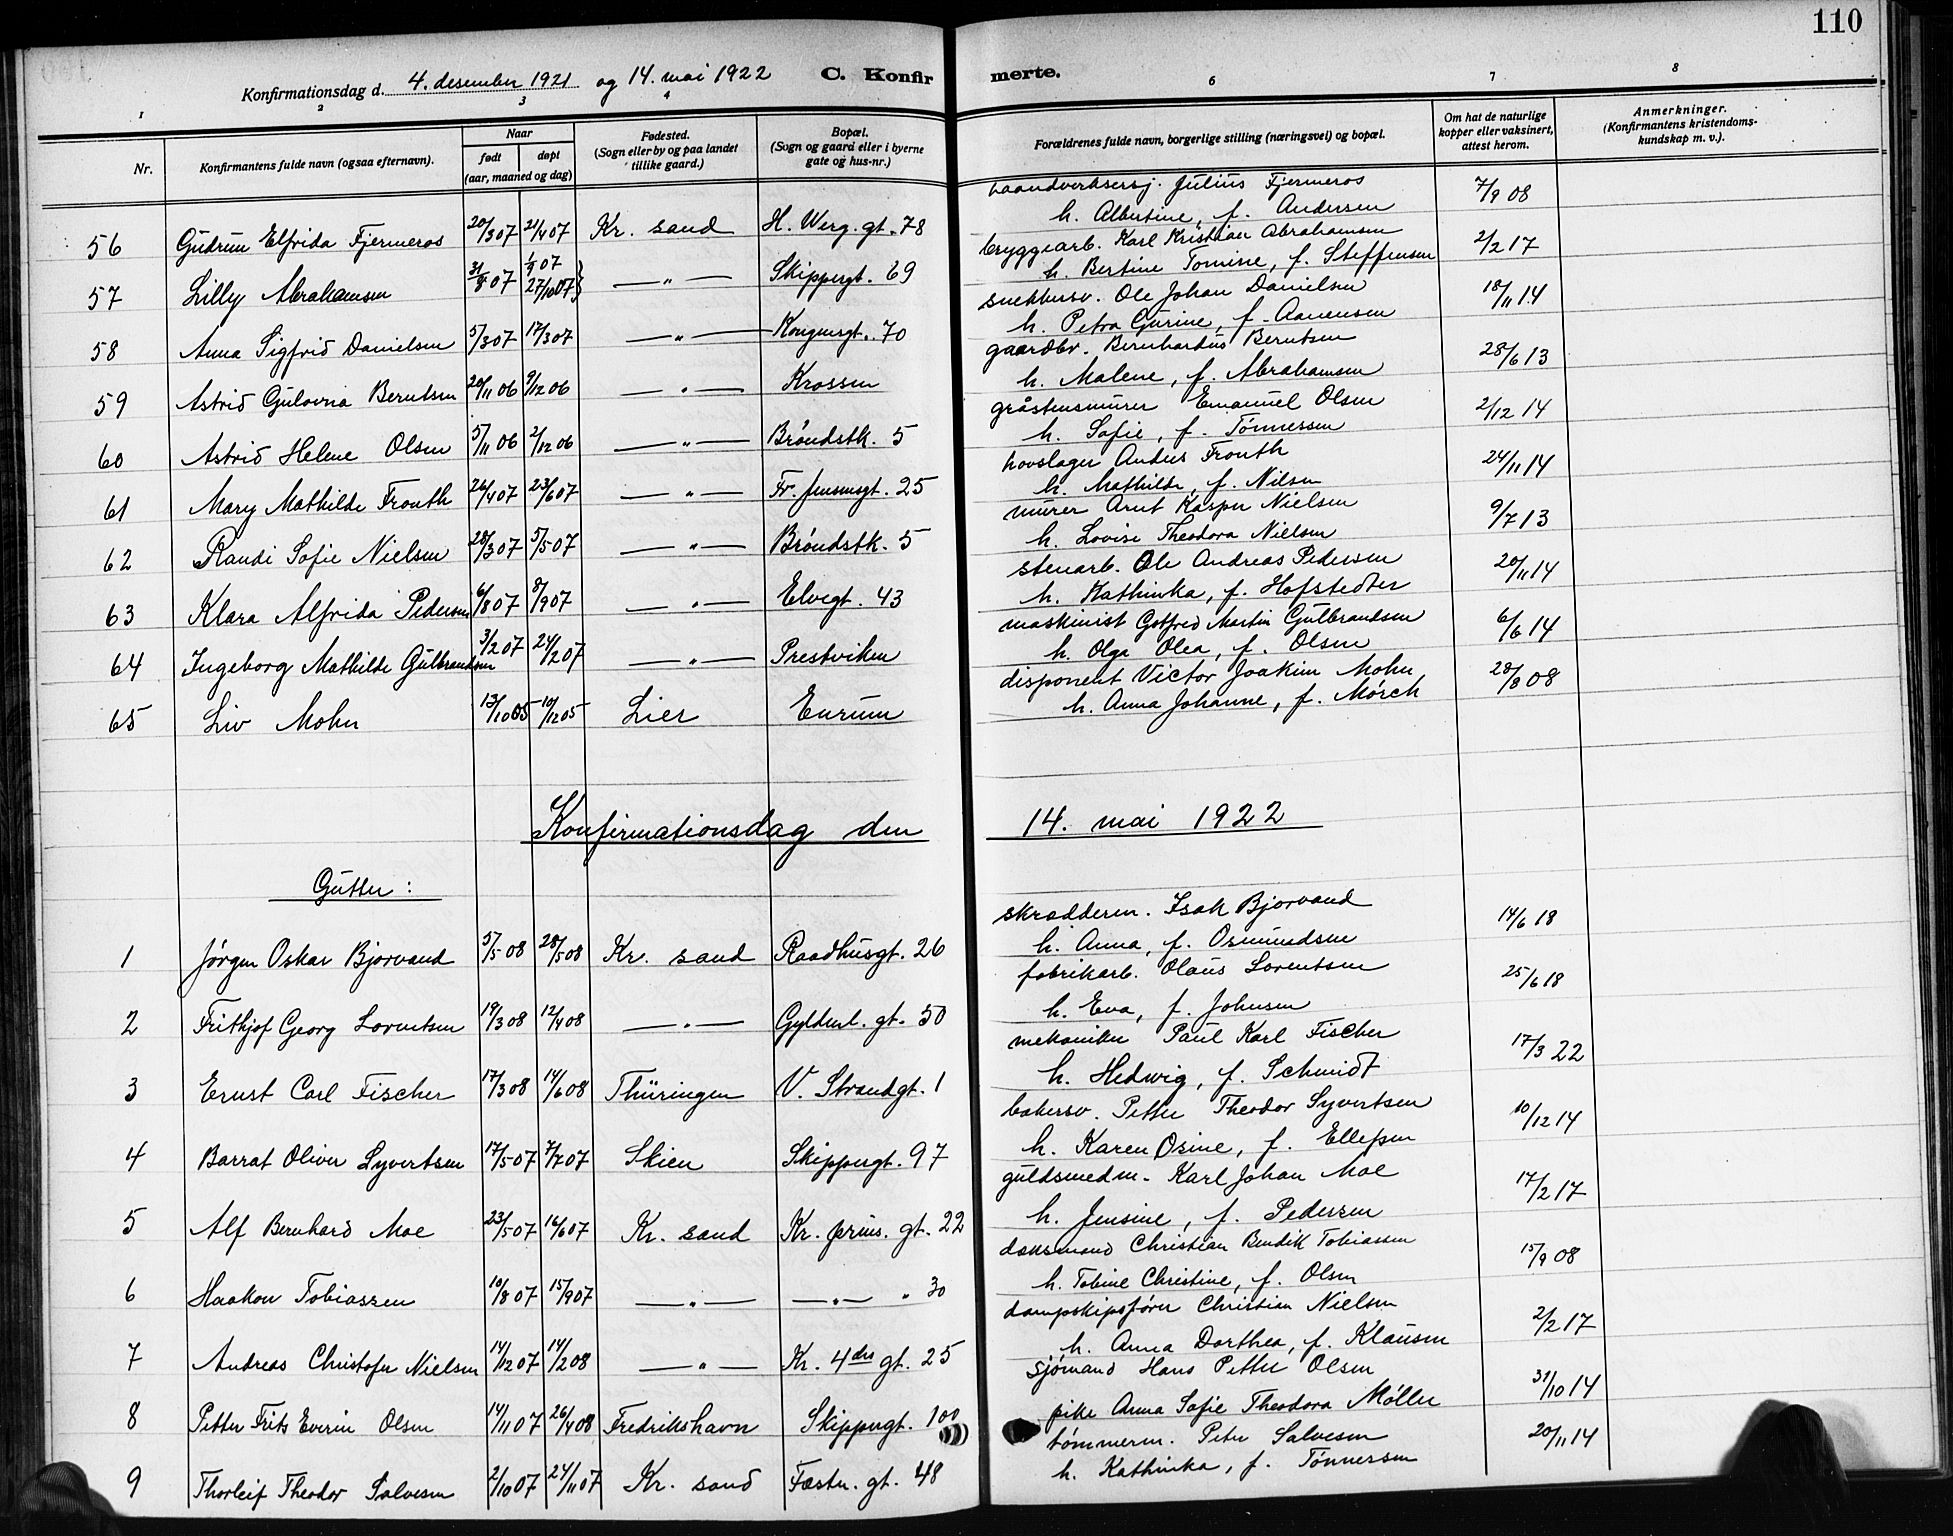 110
Konfirmationsdag d. 4. desember 1921 og 14. mai 1922 C. Konfirmerte.
1 2 3 4 6 7 8
Nr. Konfirmantens fulde navn (ogsaa efternavn). Naar født døpt (aar, maaned og dag) Fødested. (Sogn eller by og paa landet tillike gaard.) Bopæl. (Sogn og gaard eller i byerne gate og hus-nr.) Forældrenes fulde navn, borgerlige stilling (næringsvei) og bopæl. Om hat de naturlige kopper eller vaksinert, attest herom. Anmerkninger. (Konfirmantens kristendomskundskap m. v.).
haandverksersj. Julius Fjermeros 7/9 08
56 Gudrun Elfrida Fjermeros 20/3 07 21/4 07 Kr. sand H. Werg. gt. 78 h. Albertine, f. Andersen
bryggearb. Karl Kristian Abrahamsen 2/2 17
57 Lilly Abrahamsen 31/8 07 1/9 07 27/10 07 } — " — Skippergt. 69 h. Bertine Tomine, f. Steffensen
snekkersv. Ole Johan Danielsen 18/11 14
58 Anna Sigfrid Danielsen 5/3 07 17/3 07 — " — Kongensgt. 70 h. Petra Gurine, f. Aanensen
gaardbr. Bernhardus Berntsen 28/6 13
59 Astrid Gulovna Berntsen 20/11 06 9/12 06 — " — Krossen h. Malene, f. Abrahamsen
gråstensmurer Emanuel Olsen 2/12 14
60 Astrid Helene Olsen 5/11 06 2/12 06 — " — Brøndstk. 5 h. Sofie, f. Tønnessen
hovslager Anders Fronth 24/11 14
61 Mary Mathilde Fronth 26/4 07 23/6 07 — " — Fr. Jensensgt. 25 h. Mathilde, f. Nilsen
murer Arnt Kasper Nielsen 9/7 13
62 Randi Sofie Nielsen 28/3 07 5/5 07 — " — Brøndstk. 5 h. Lovise Theodora Nielsen
stenarb. Ole Andreas Pedersen 20/11 14
63 Klara Alfrida Pedersen 6/8 07 8/9 07 — " — Elvegt. 43 h. Kathinka, f. Hofstedter
maskinist Gotfred Martin Gulbrandsen 6/6 14
64 Ingeborg Mathilde Gulbrandsen 3/2 07 24/2 07 — " — Prestviken h. Olga Olea, f. Olsen
disponent Victor Joakim Mohn 28/8 08
65 Liv Mohn 13/10 05 10/12 05 Lier Enrum h. Anna Johanne, f. Mørch
Konfirmationsdag den 14. mai 1922
Gutter:
skrædderm. Isak Bjorvand 14/6 18
1 Jørgen Oskar Bjorvand 5/5 08 28/5 08 Kr. sand Raadhusgt. 26 h. Anna, f. Osmundsen
fabrikarb. Olaus Lorentsen 25/6 18
2 Frithjof Georg Lorentsen 19/3 08 12/4 08 — " — Gyldenl. gt. 50 h. Eva, f. Johnsen
mekaniker Paul Karl Fischer 17/3 22
3 Ernst Carl Fischer 17/3 08 14/6 08 Thüringen V. Strandgt. 1 h. Hedwig, f. Schmidt
bakersv. Petter Theodor Syvertsen 10/12 14
4 Barrat Oliver Syvertsen 17/5 07 7/7 07 Skien Skippergt. 97 h. Karen Osine, f. Ellefsen
guldsmedm. Karl Johan Moe 17/2 17
5 Alf Bernhard Moe 23/5 07 16/6 07 Kr. sand Kr. prins. gt. 22 h. Jensine, f. Pedersen
Christian Bendik Tobiassen 15/9 08
6 Haakon Tobiassen 10/8 07 15/9 07 — " — — " — " 30 h. Tobine Christine, f. Olsen
dampskipsfører Christian Nielsen 2/2 17
7 Andreas Christofer Nielsen 14/12 07 14/2 08 — " — Kr. 4des gt. 25 h. Anna Dorthea, f. Klausen
sjømand Hans Petter Olsen 31/10 14
8 Petter Frits Everin Olsen 14/11 07 26/4 08 Fredrikshavn Skippergt. 100 pike Anna Sofie Theodora Møller
tømmerm. Peter Salvesen 20/11 14
9 Thorleif Theodor Salvesen 2/10 07 24/11 07 Kr. sand Fæstn. gt. 48 h. Kathinka, f. Tønnessen